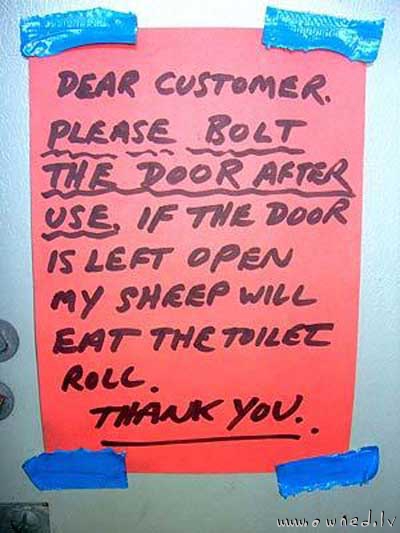 DEAR CUSTOMER.
PLEASE BOLT
THE DOOR AFTER
USE. IF THE DOOR
IS LEFT OPEN
MY SHEEP WILL
EAT THE TOILET
ROLL.
THANK YOU.
www.owned.lv